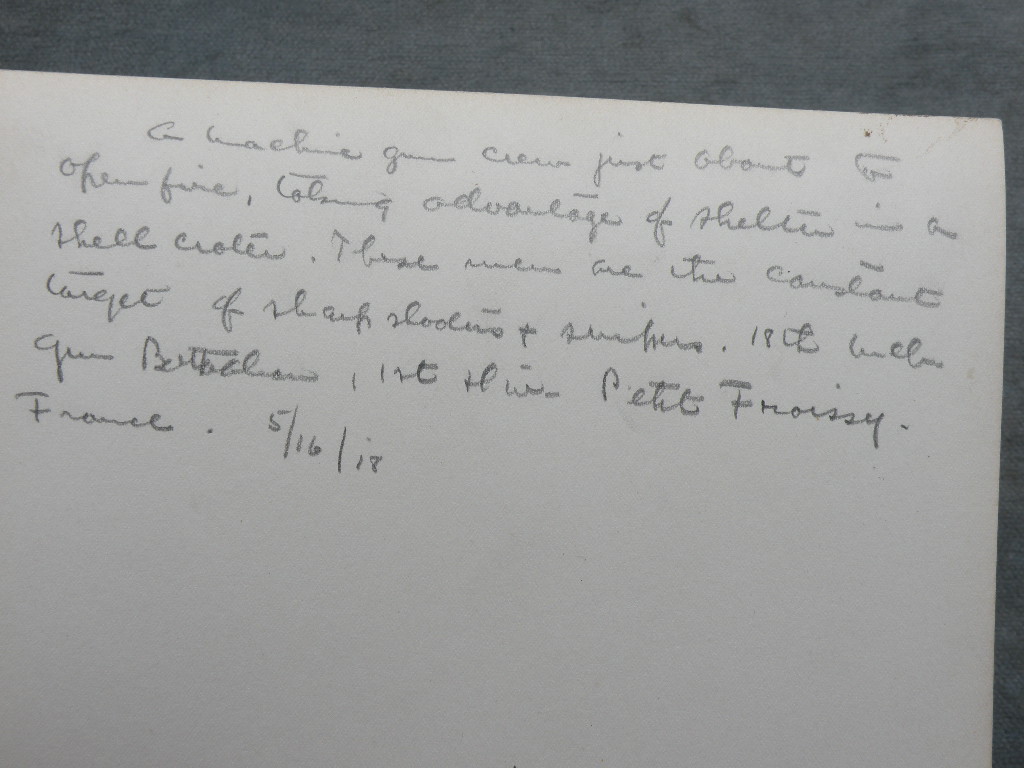 A machine gun crew just about to
open fire, taking advantage of shelter in a
shell crater. These men are the constant
target of sharp shooters + snipers. 18th Mch
Gun Battalion, 1st Div. Petit Froissy.
France. 5/16/18